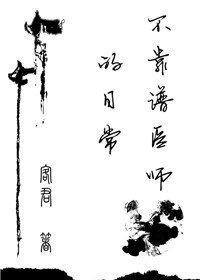 不靠谱医师
的日常
客君 著